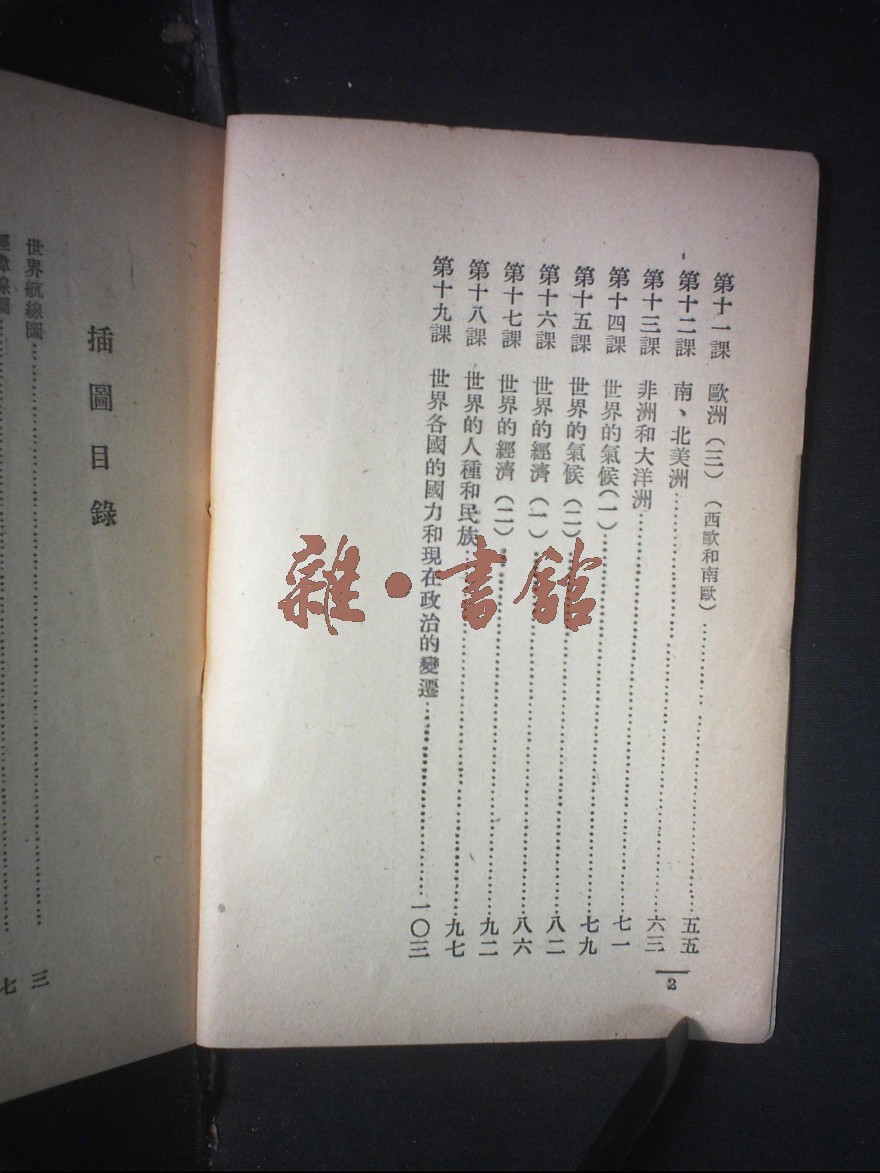 第十一課 歐洲(三)(西歐和南歐)……五五
第十二課 南、北美洲……六三
第十三課 非洲和大洋洲……七一
第十四課 世界的氣候(一)……七九
第十五課 世界的氣候(二)……八二
第十六課 世界的經濟(一)……八六
第十七課 世界的經濟(二)……九二
第十八課 世界的人種和民族……九七
第十九課 世界各國的國力和現在政治的變遷……一〇三
2
插圖目錄
世界航線圖……三
經緯線圖……七
雜·書館